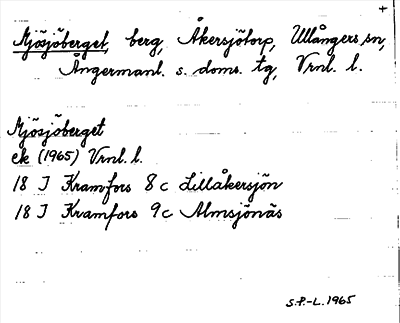 +
Mjösjöberget, berg, Åkersjötorp, Ullångers sn,
Ångermanl. s. doms. tg, Vrnl. l.
Mjösjöberget
ek (1965) Vrnl. l.
18 I Kramfors 8 c Lillåkersjön
18 I Kramfors 9 c Almsjönäs
S.P.-L. 1965